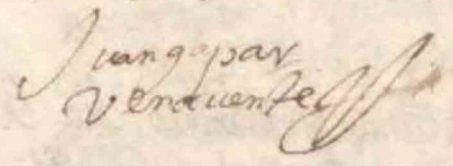 Juan gaspar
Venavente